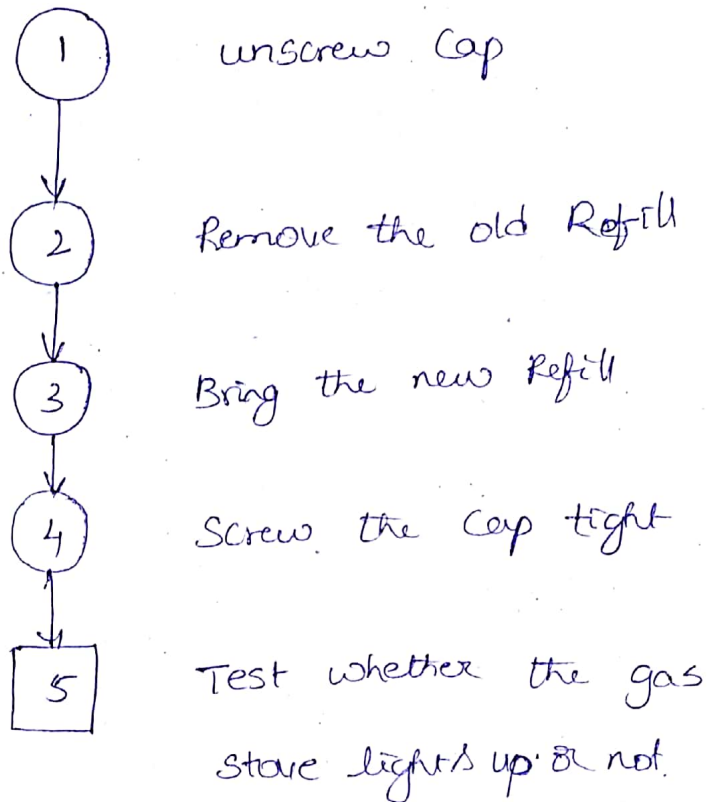 1 unscrew Cap
2 Remove the old Refill
3 Bring the new Refill
4 Screw the Cap tight
5 Test whether the gas
stove lights up or not.